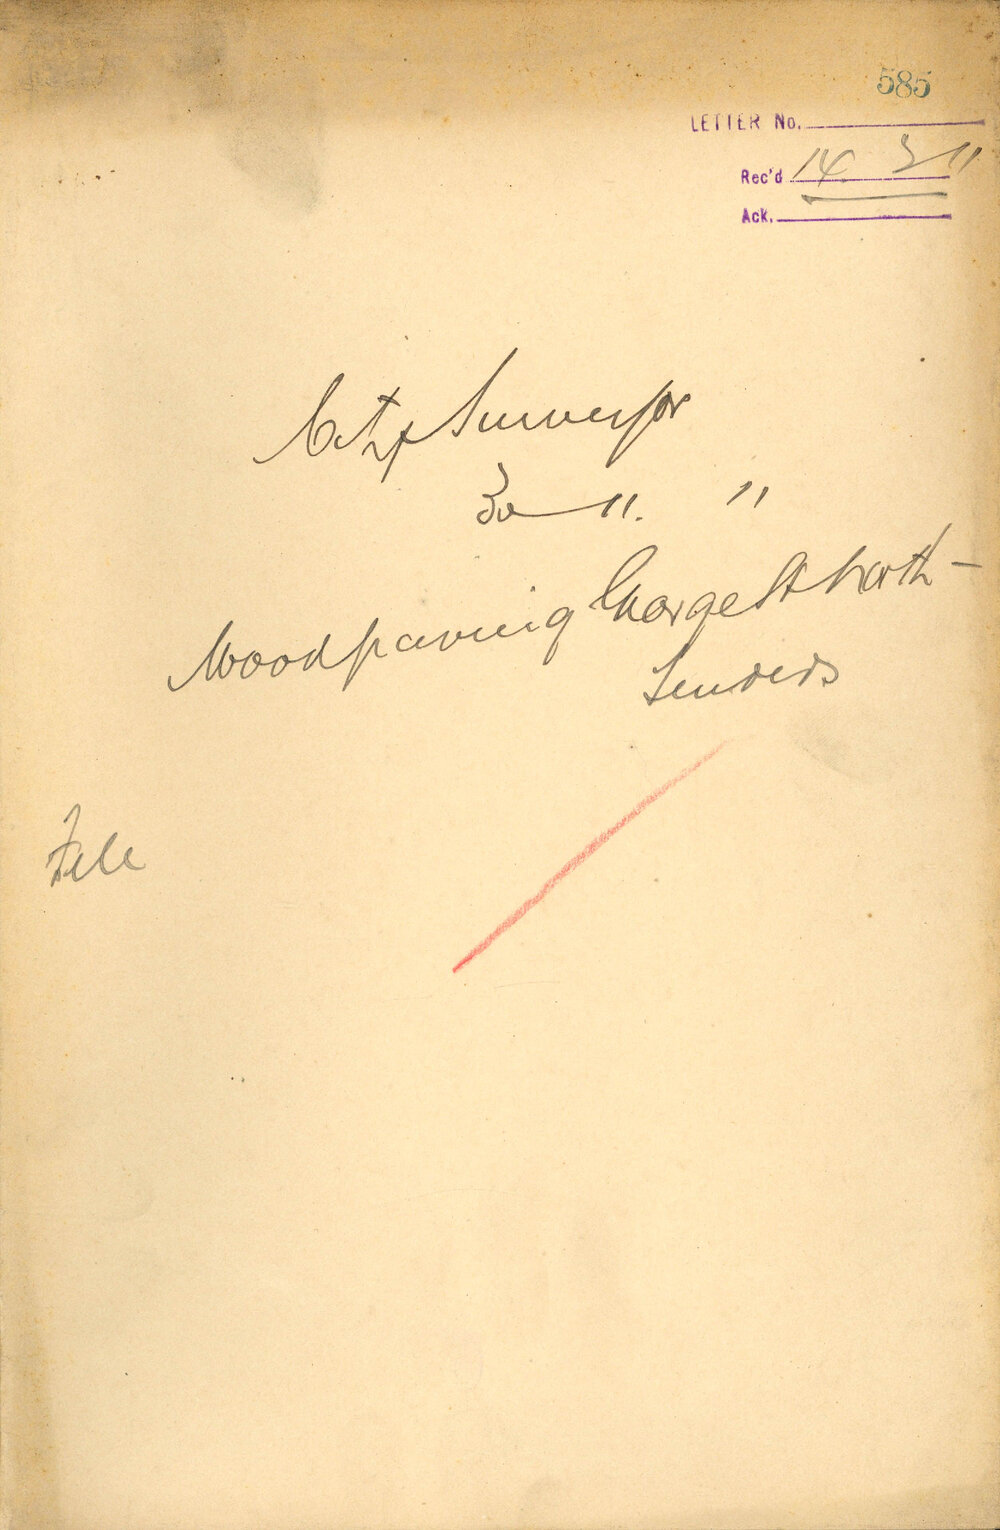 585
LETTER No.
Rec'd 14 3 11
Ack.
City Surveyor
11. 11
Woodpaving George St North -
Tenders
File